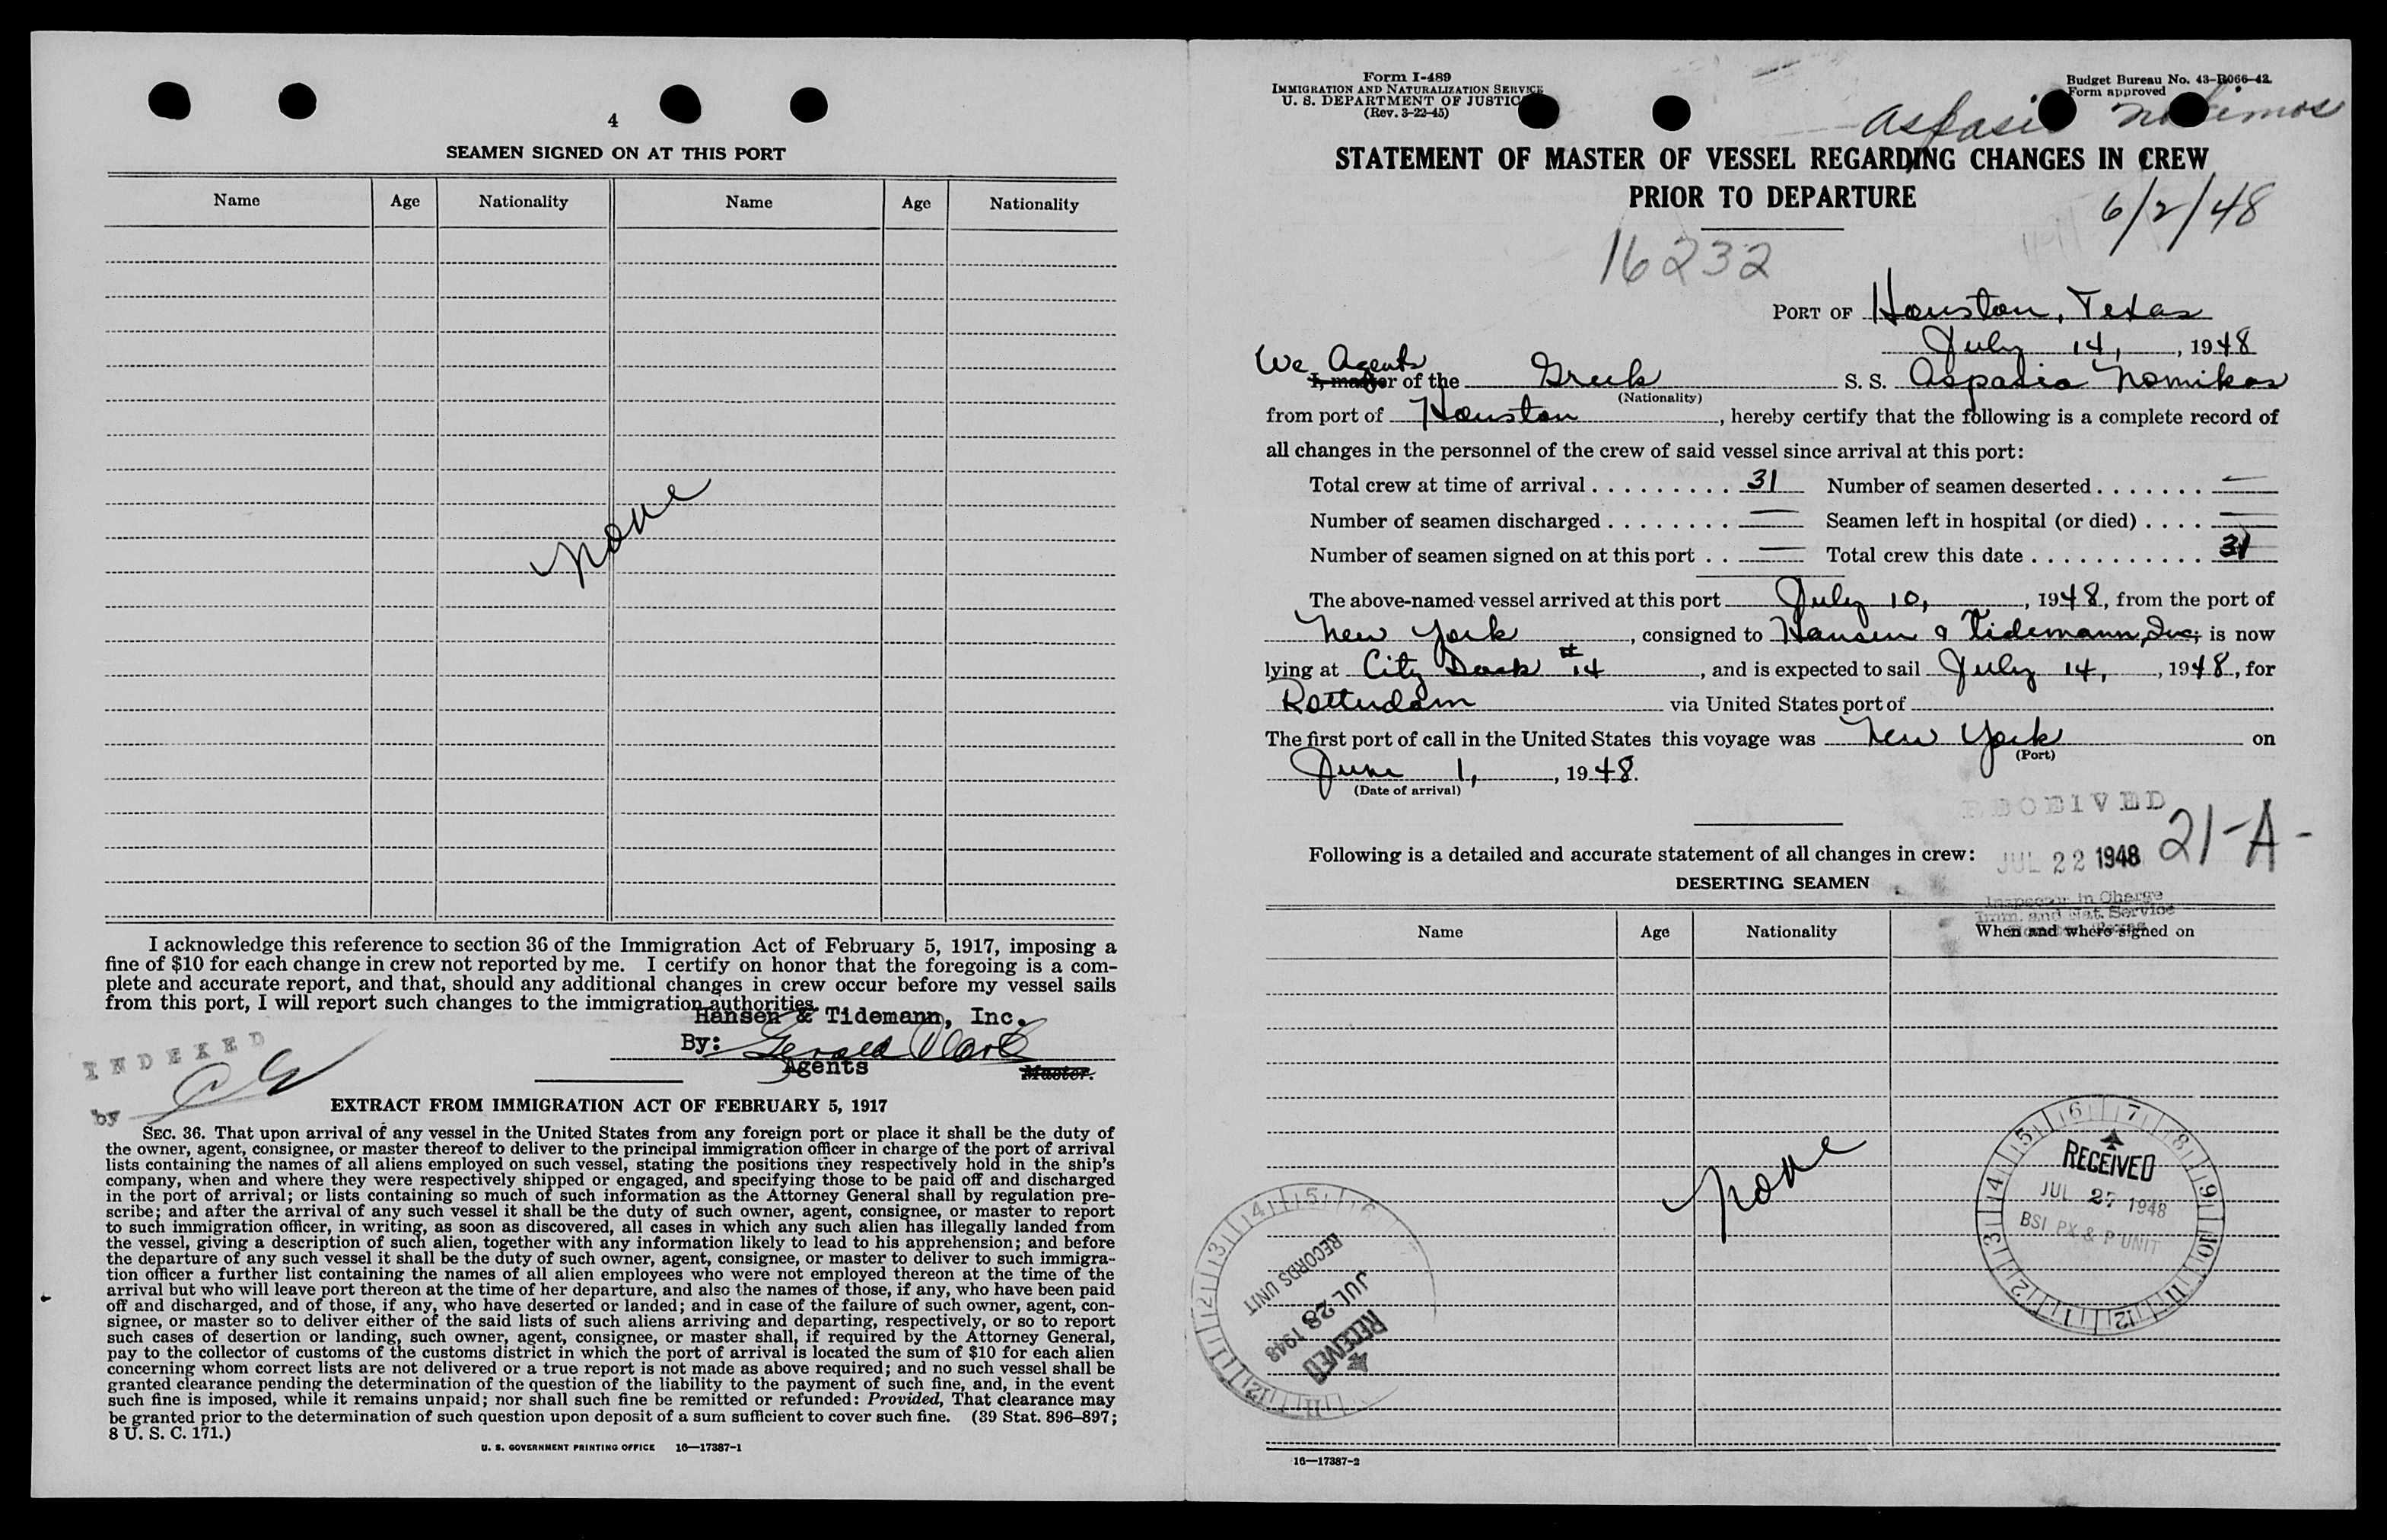 4
SEAMEN SIGNED ON AT THIS PORT
Name Age Nationality Name Age Nationality
None
I acknowledge this reference to section 36 of the Immigration Act of February 5, 1917, imposing a
fine of $10 for each change in crew not reported by me. I certify on honor that the foregoing is a com-
plete and accurate report, and that, should any additional changes in crew occur before my vessel sails
from this port, I will report such changes to the immigration authorities.
Hansen & Tidemann, Inc.
By: Gerald Clark
Agents Master.
INDEXED
by
EXTRACT FROM IMMIGRATION ACT OF FEBRUARY 5, 1917
SEC. 36. That upon arrival of any vessel in the United States from any foreign port or place it shall be the duty of
the owner, agent, consignee, or master thereof to deliver to the principal immigration officer in charge of the port of arrival
lists containing the names of all aliens employed on such vessel, stating the positions they respectively hold in the ship's
company, when and where they were respectively shipped or engaged, and specifying those to be paid off and discharged
in the port of arrival; or lists containing so much of such information as the Attorney General shall by regulation pre-
scribe; and after the arrival of any such vessel it shall be the duty of such owner, agent, consignee, or master to report
to such immigration officer, in writing, as soon as discovered, all cases in which any such alien has illegally landed from
the vessel, giving a description of such alien, together with any information likely to lead to his apprehension; and before
the departure of any such vessel it shall be the duty of such owner, agent, consignee, or master to deliver to such immigra-
tion officer a further list containing the names of all alien employees who were not employed thereon at the time of the
arrival but who will leave port thereon at the time of her departure, and also the names of those, if any, who have been paid
off and discharged, and of those, if any, who have deserted or landed; and in case of the failure of such owner, agent, con-
signee, or master so to deliver either of the said lists of such aliens arriving and departing, respectively, or so to report
such cases of desertion or landing, such owner, agent, consignee, or master shall, if required by the Attorney General,
pay to the collector of customs of the customs district in which the port of arrival is located the sum of $10 for each alien
concerning whom correct lists are not delivered or a true report is not made as above required; and no such vessel shall be
granted clearance pending the determination of the question of the liability to the payment of such fine, and, in the event
such fine is imposed, while it remains unpaid; nor shall such fine be remitted or refunded: Provided, That clearance may
be granted prior to the determination of such question upon deposit of a sum sufficient to cover such fine. (39 Stat. 896–897;
8 U. S. C. 171.)
U. S. GOVERNMENT PRINTING OFFICE 16—17387-1
Form I-489
IMMIGRATION AND NATURALIZATION SERVICE
U. S. DEPARTMENT OF JUSTICE
(Rev. 3-22-45)
Budget Bureau No. 43-R066-42.
Form approved
STATEMENT OF MASTER OF VESSEL REGARDING CHANGES IN CREW
PRIOR TO DEPARTURE
6/2/48
16232
PORT OF Houston, Texas
July 14, , 1948
We Agents
I, master of the Greek S. S. Aspasia Nomikos
(Nationality)
from port of Houston , hereby certify that the following is a complete record of
all changes in the personnel of the crew of said vessel since arrival at this port:
Total crew at time of arrival . . . . . . . . . . 31 Number of seamen deserted . . . . . . . —
Number of seamen discharged . . . . . . . . — Seamen left in hospital (or died) . . . . —
Number of seamen signed on at this port . . — Total crew this date . . . . . . . . . . . . 31
The above-named vessel arrived at this port July 10, , 1948, from the port of
New York , consigned to Hansen & Tidemann, Inc; is now
lying at City Dock #14 , and is expected to sail July 14, , 1948, for
Rotterdam via United States port of .
The first port of call in the United States this voyage was New York on
(Port)
June 1, , 1948.
(Date of arrival)
RECEIVED
21-A-
Following is a detailed and accurate statement of all changes in crew:
JUL 22 1948
DESERTING SEAMEN
Inspector in Charge
Imm. and Nat. Service
Name Age Nationality When and where signed on
None
6 7 8 9 10 11 12 1 2 3 4 5
RECEIVED
JUL 27 1948
BSI PX & P UNIT
RECEIVED
JUL 28 1948
RECORDS UNIT
16—17387-2